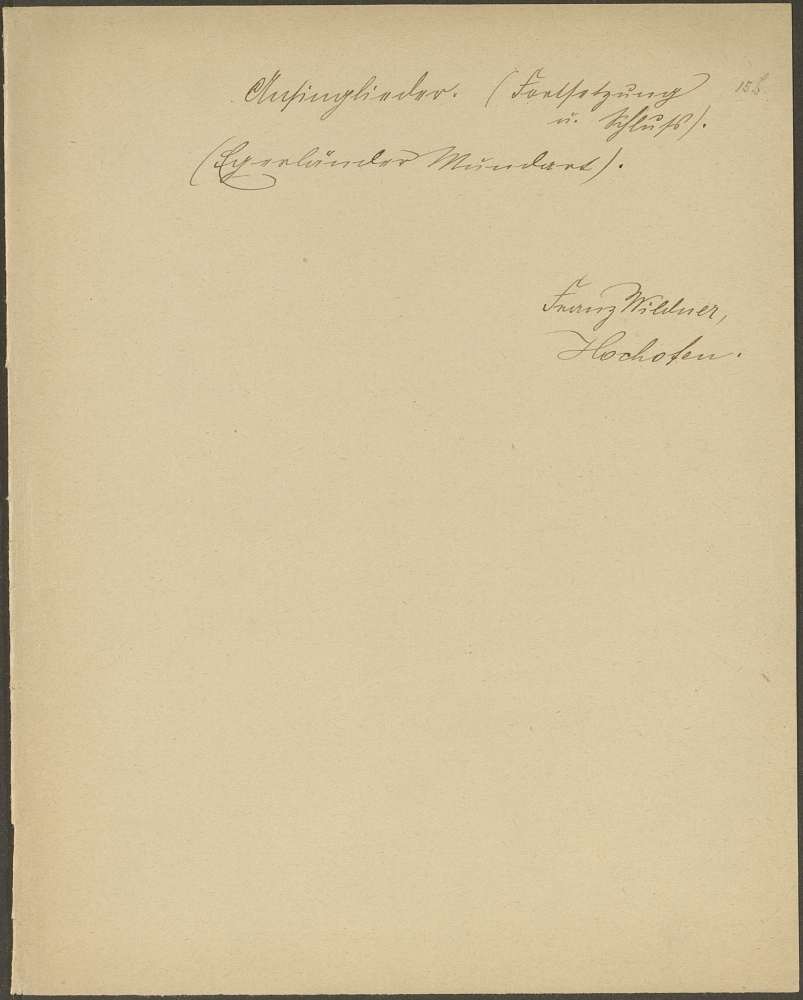 Ansinglieder. (Fortsetzung
u. Schluß).
(Egerländer Mundart).
Franz Wildner,
Hochofen.